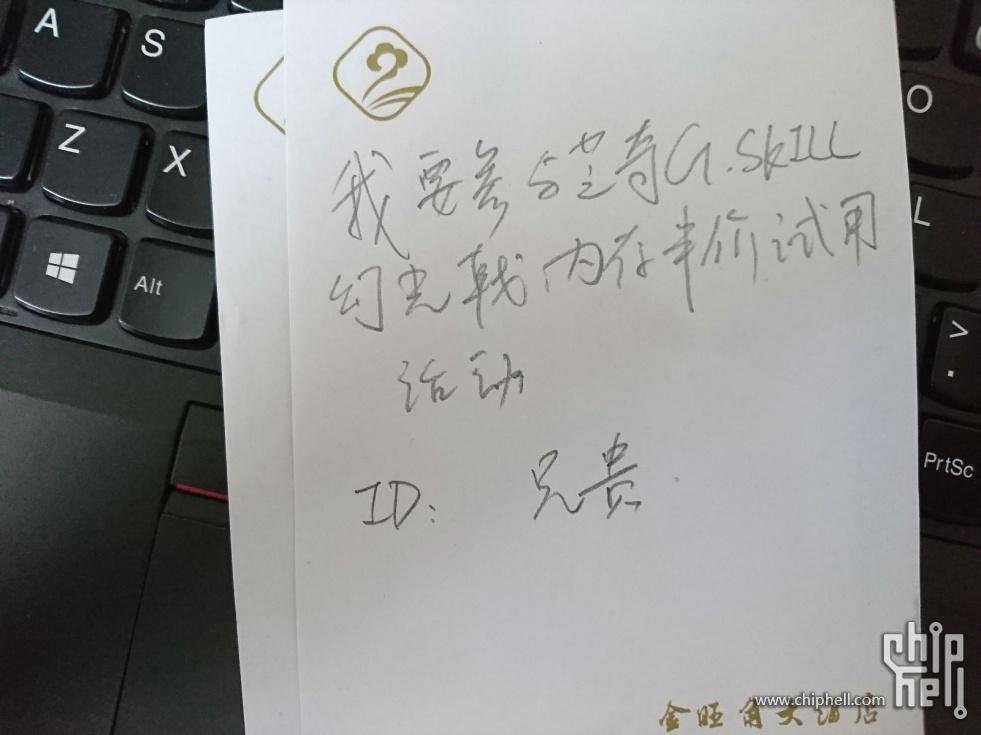 A
S
Z
X
Alt
O
L
>
.
PrtSc
我要参与芝奇G.SKILL
幻光戟内存半价试用
活动
ID: 兄贵
chip
hell
www.chiphell.com
金旺角大酒店